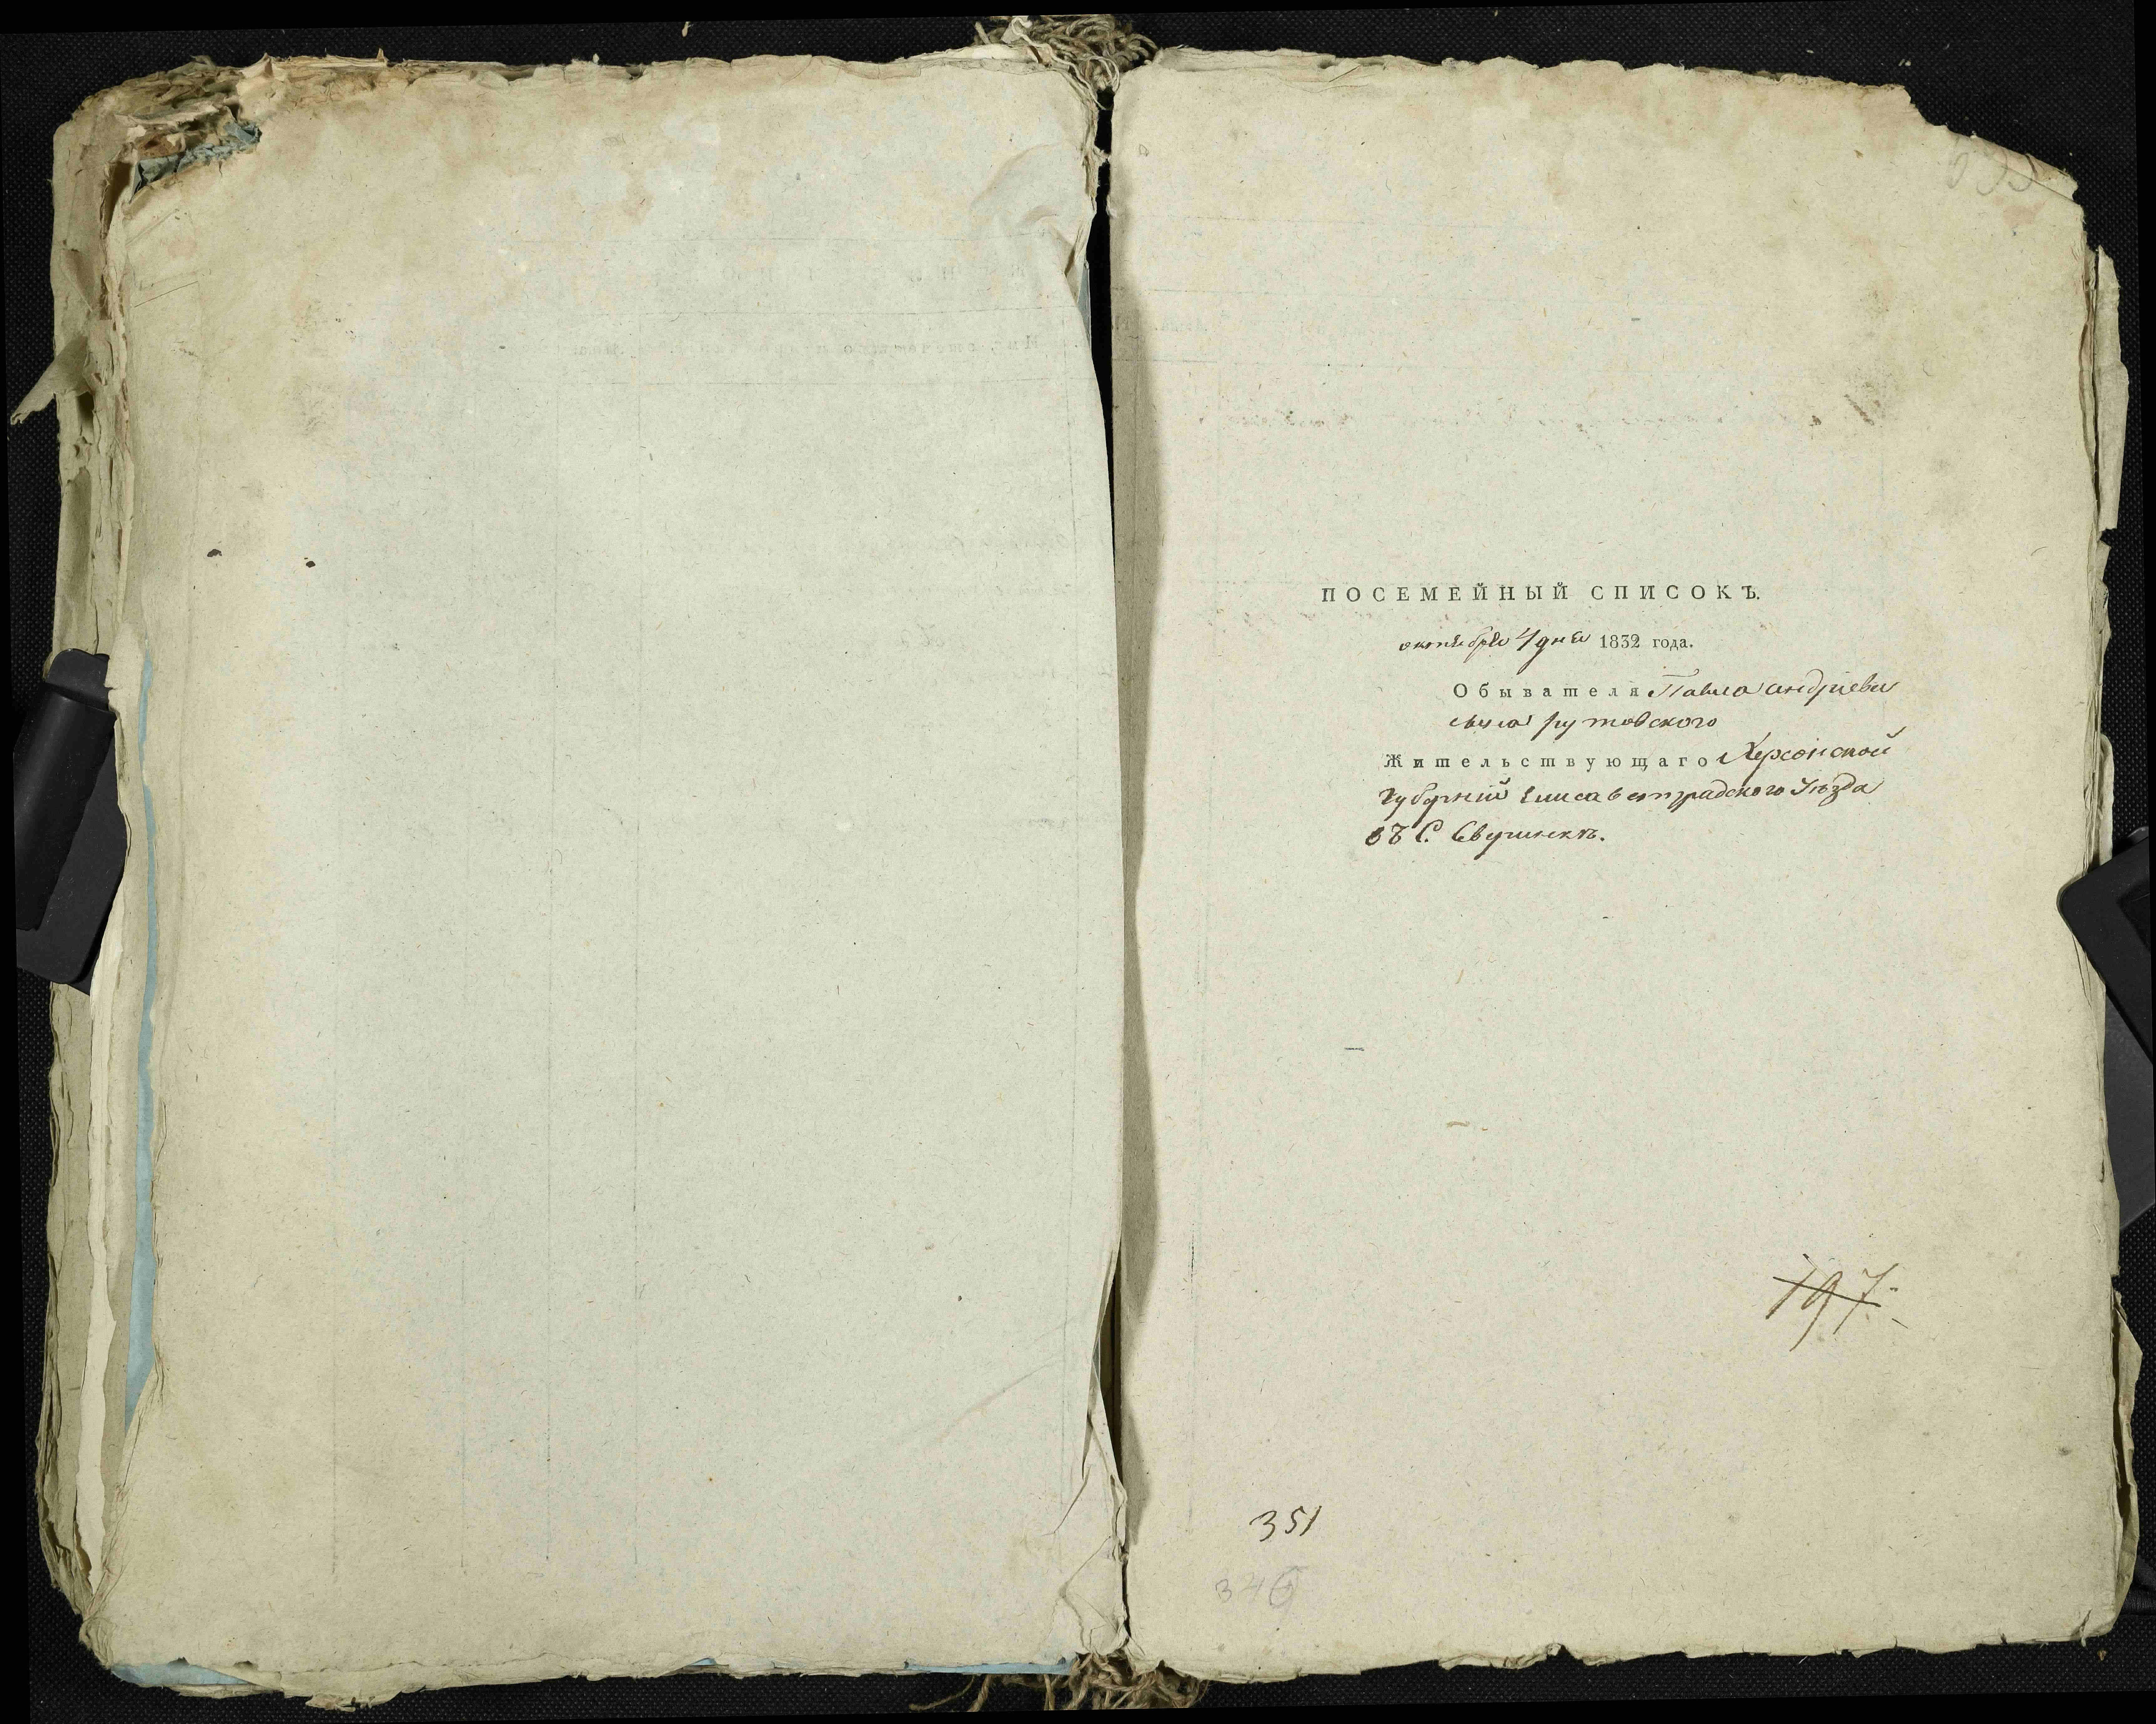 ПОСЕМЕЙНЫЙ СПИСОКЪ.
октября 4 дня 1832 года.
Обывателя Павла андриева
сына рутовского
Жительствующаго Херсонской
Губерній Елисаветградского Уѣзда
въ С.
197
351
346